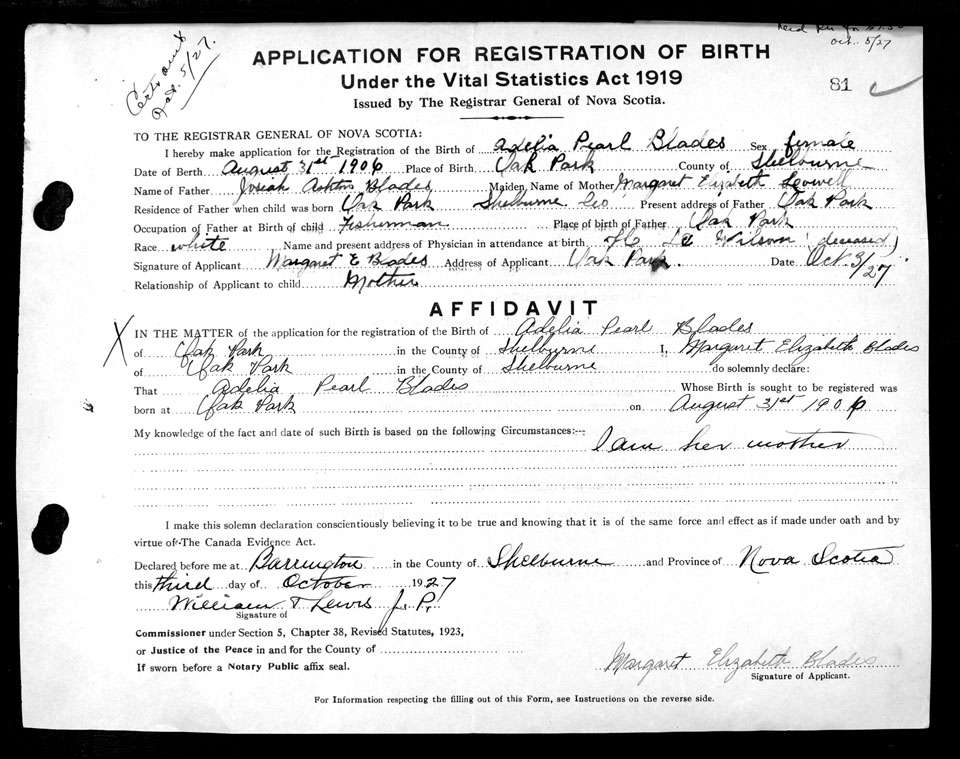 Oct. 5/27
Oct. 5/27.
APPLICATION FOR REGISTRATION OF BIRTH
Under the Vital Statistics Act 1919
81
Issued by The Registrar General of Nova Scotia.
TO THE REGISTRAR GENERAL OF NOVA SCOTIA:
I hereby make application for the Registration of the Birth of Adelia Pearl Blades Sex female
Date of Birth August 31st 1906 Place of Birth Oak Park County of Shelburne
Name of Father Josiah Ashton Blades Maiden Name of Mother Margaret Elizabeth
Residence of Father when child was born Oak Park Shelburne Co Present address of Father Oak Park
Occupation of Father at Birth of child Fisherman Place of birth of Father Oak Park
Race white Name and present address of Physician in attendance at birth Wilson (deceased)
Signature of Applicant Margaret E Blades Address of Applicant Oak Park. Date Oct. 3/27
Relationship of Applicant to child Mother
AFFIDAVIT
X IN THE MATTER of the application for the registration of the Birth of Adelia Pearl Blades
of Oak Park in the County of Shelburne I, Margaret Elizabeth Blades
of Oak Park in the County of Shelburne do solemnly declare:
That Adelia Pearl Blades Whose Birth is sought to be registered was
born at Oak Park on August 31st 1906
My knowledge of the fact and date of such Birth is based on the following Circumstances:-
I am her mother
I make this solemn declaration conscientiously believing it to be true and knowing that it is of the same force and effect as if made under oath and by
virtue of The Canada Evidence Act.
Declared before me at Barrington in the County of Shelburne and Province of Nova Scotia
this third day of October 1927
William T Lewis J. P.
Signature of
Commissioner under Section 5, Chapter 38, Revised Statutes, 1923,
or Justice of the Peace in and for the County of
If sworn before a Notary Public affix seal.
Margaret Elizabeth Blades
Signature of Applicant.
For Information respecting the filling out of this Form, see Instructions on the reverse side.